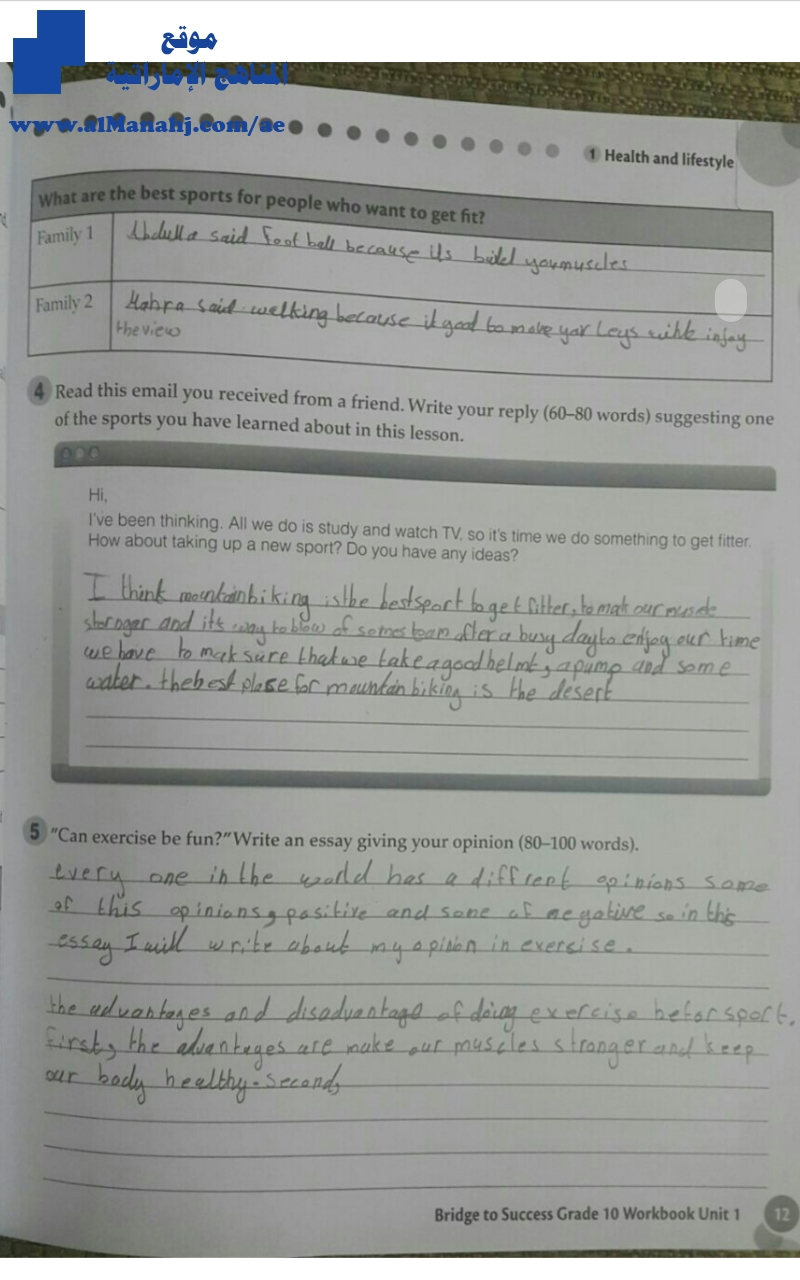 موقع
المناهج الإماراتية
www.alManahj.com/ae
1 Health and lifestyle
What are the best sports for people who want to get fit?
Family 1
Abdulla said foot ball because its build youmuscles
Family 2
Mahra said welking because it good to move yor leys injoy
the view
4 Read this email you received from a friend. Write your reply (60–80 words) suggesting one
of the sports you have learned about in this lesson.
Hi,
I've been thinking. All we do is study and watch TV, so it's time we do something to get fitter.
How about taking up a new sport? Do you have any ideas?
I think mountainbiking is the best sport to get fitter, to mak our
storoger and it's way to blow of some steam after a busy day to enjoy our time
we have to mak sure that we take a good helmt, a pump and some
water. the best plase for mountain biking is the desert
5 "Can exercise be fun?" Write an essay giving your opinion (80–100 words).
every one in the world has a diffrent opinions some
of this opinions, positive and some of negative so in this
essay I will write about my opinion in exercise.
the advantages and disadvantage of doing exercise befor sport.
First, the advantages are make our muscles stronger and keep
our body healthy. second,
Bridge to Success Grade 10 Workbook Unit 1
12